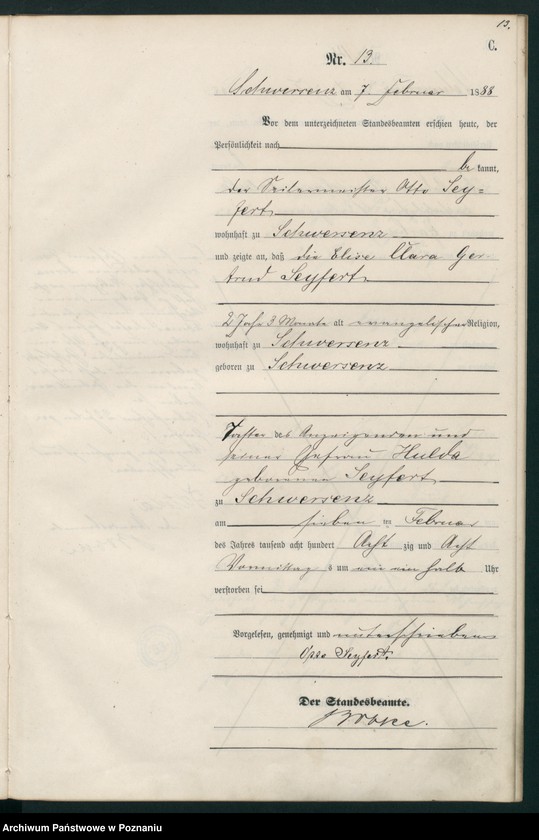 13.
C.
Nr. 13.
Schwersenz am 7. Februar 1888
Vor dem unterzeichneten Standesbeamten erschien heute, der
Persönlichkeit nach
be kannt,
der Seilermeister Otto Sey=
fert
wohnhaft zu Schwersenz
und zeigte an, daß die Elise Clara Ger
trud Seyfert
2 Jahr 3 Monate alt evangelischer Religion,
wohnhaft zu Schwersenz
geboren zu Schwersenz
Tochter des Anzeigenden und
seiner Ehefrau Hulda
geborenen Seyfert
zu Schwersenz
am sieben ten Februar
des Jahres tausend acht hundert Acht zig und Acht
Vormittag s um ein halb Uhr
verstorben sei
Vorgelesen, genehmigt und unterschrieben
Otto Seyfert
Der Standesbeamte.
Archiwum Państwowe w Poznaniu